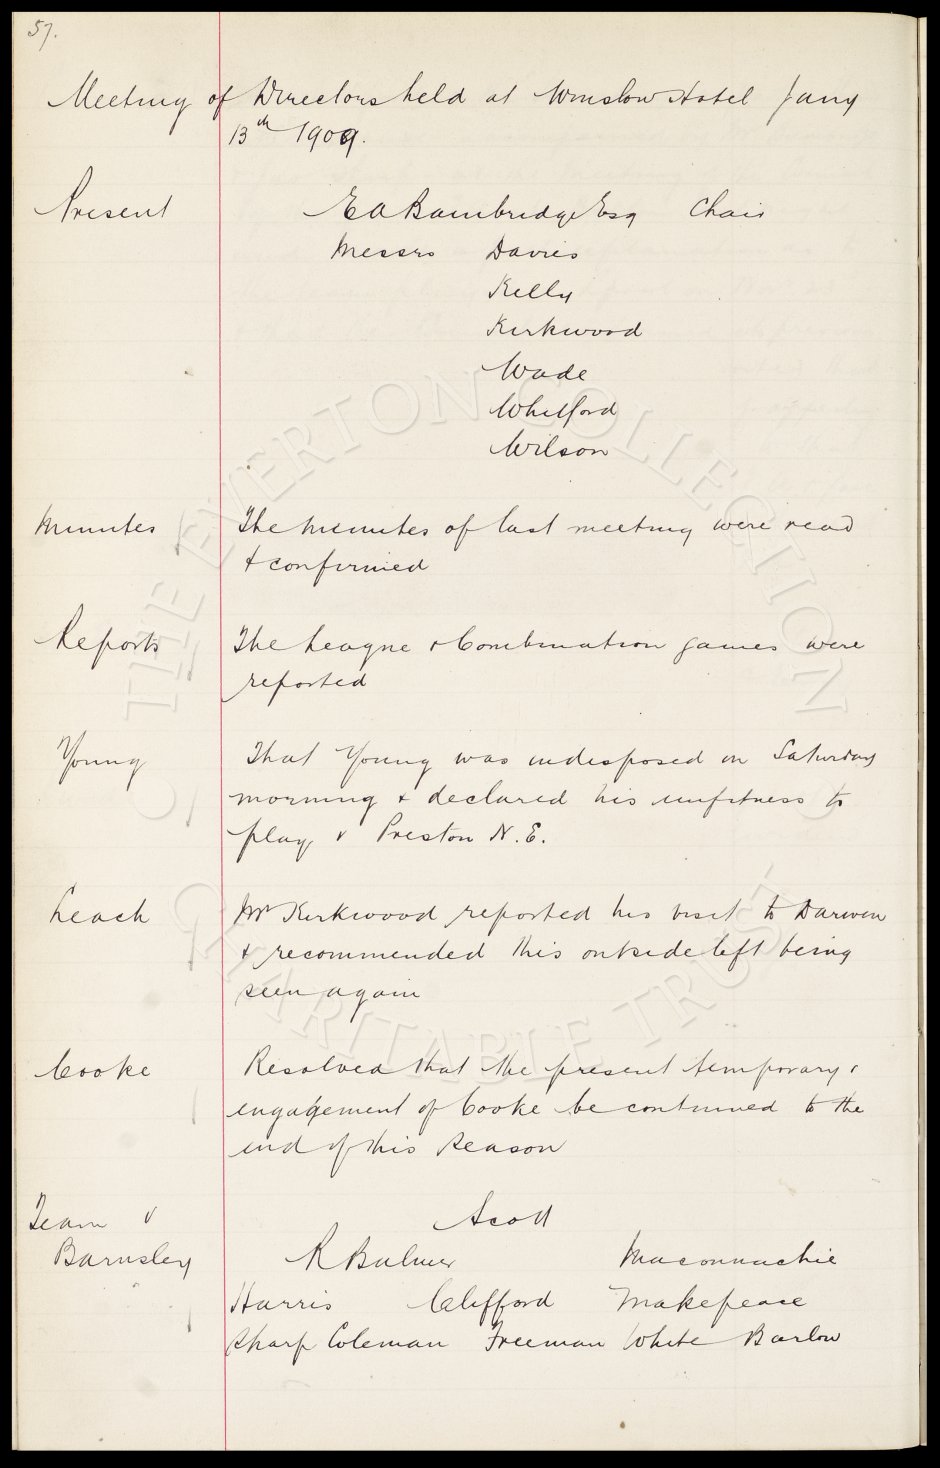 57.
Meeting of Directors held at Winslow Hotel Jany
13th 1909.
Present E A Bainbridge Esq Chair
Messrs Davies
Kelly
Kirkwood
Wade
Whitford
Wilson
Minutes The minutes of last meeting were read
& confirmed
Reports The League & Combination games were
reported
Young That Young was indisposed on Saturday
morning & declared his unfitness to
play v Preston N.E.
Leach Mr Kirkwood reported his visit to Darwen
& recommended this outside left being
seen again
Cooke Resolved that the present temporary
engagement of Cooke be continued to the
end of this season
Team v Scott
Barnsley R Balmer Maconnachie
Harris Clifford Makepeace
Sharp Coleman Freeman White Barlow
© THE EVERTON COLLECTION
CHARITABLE TRUST